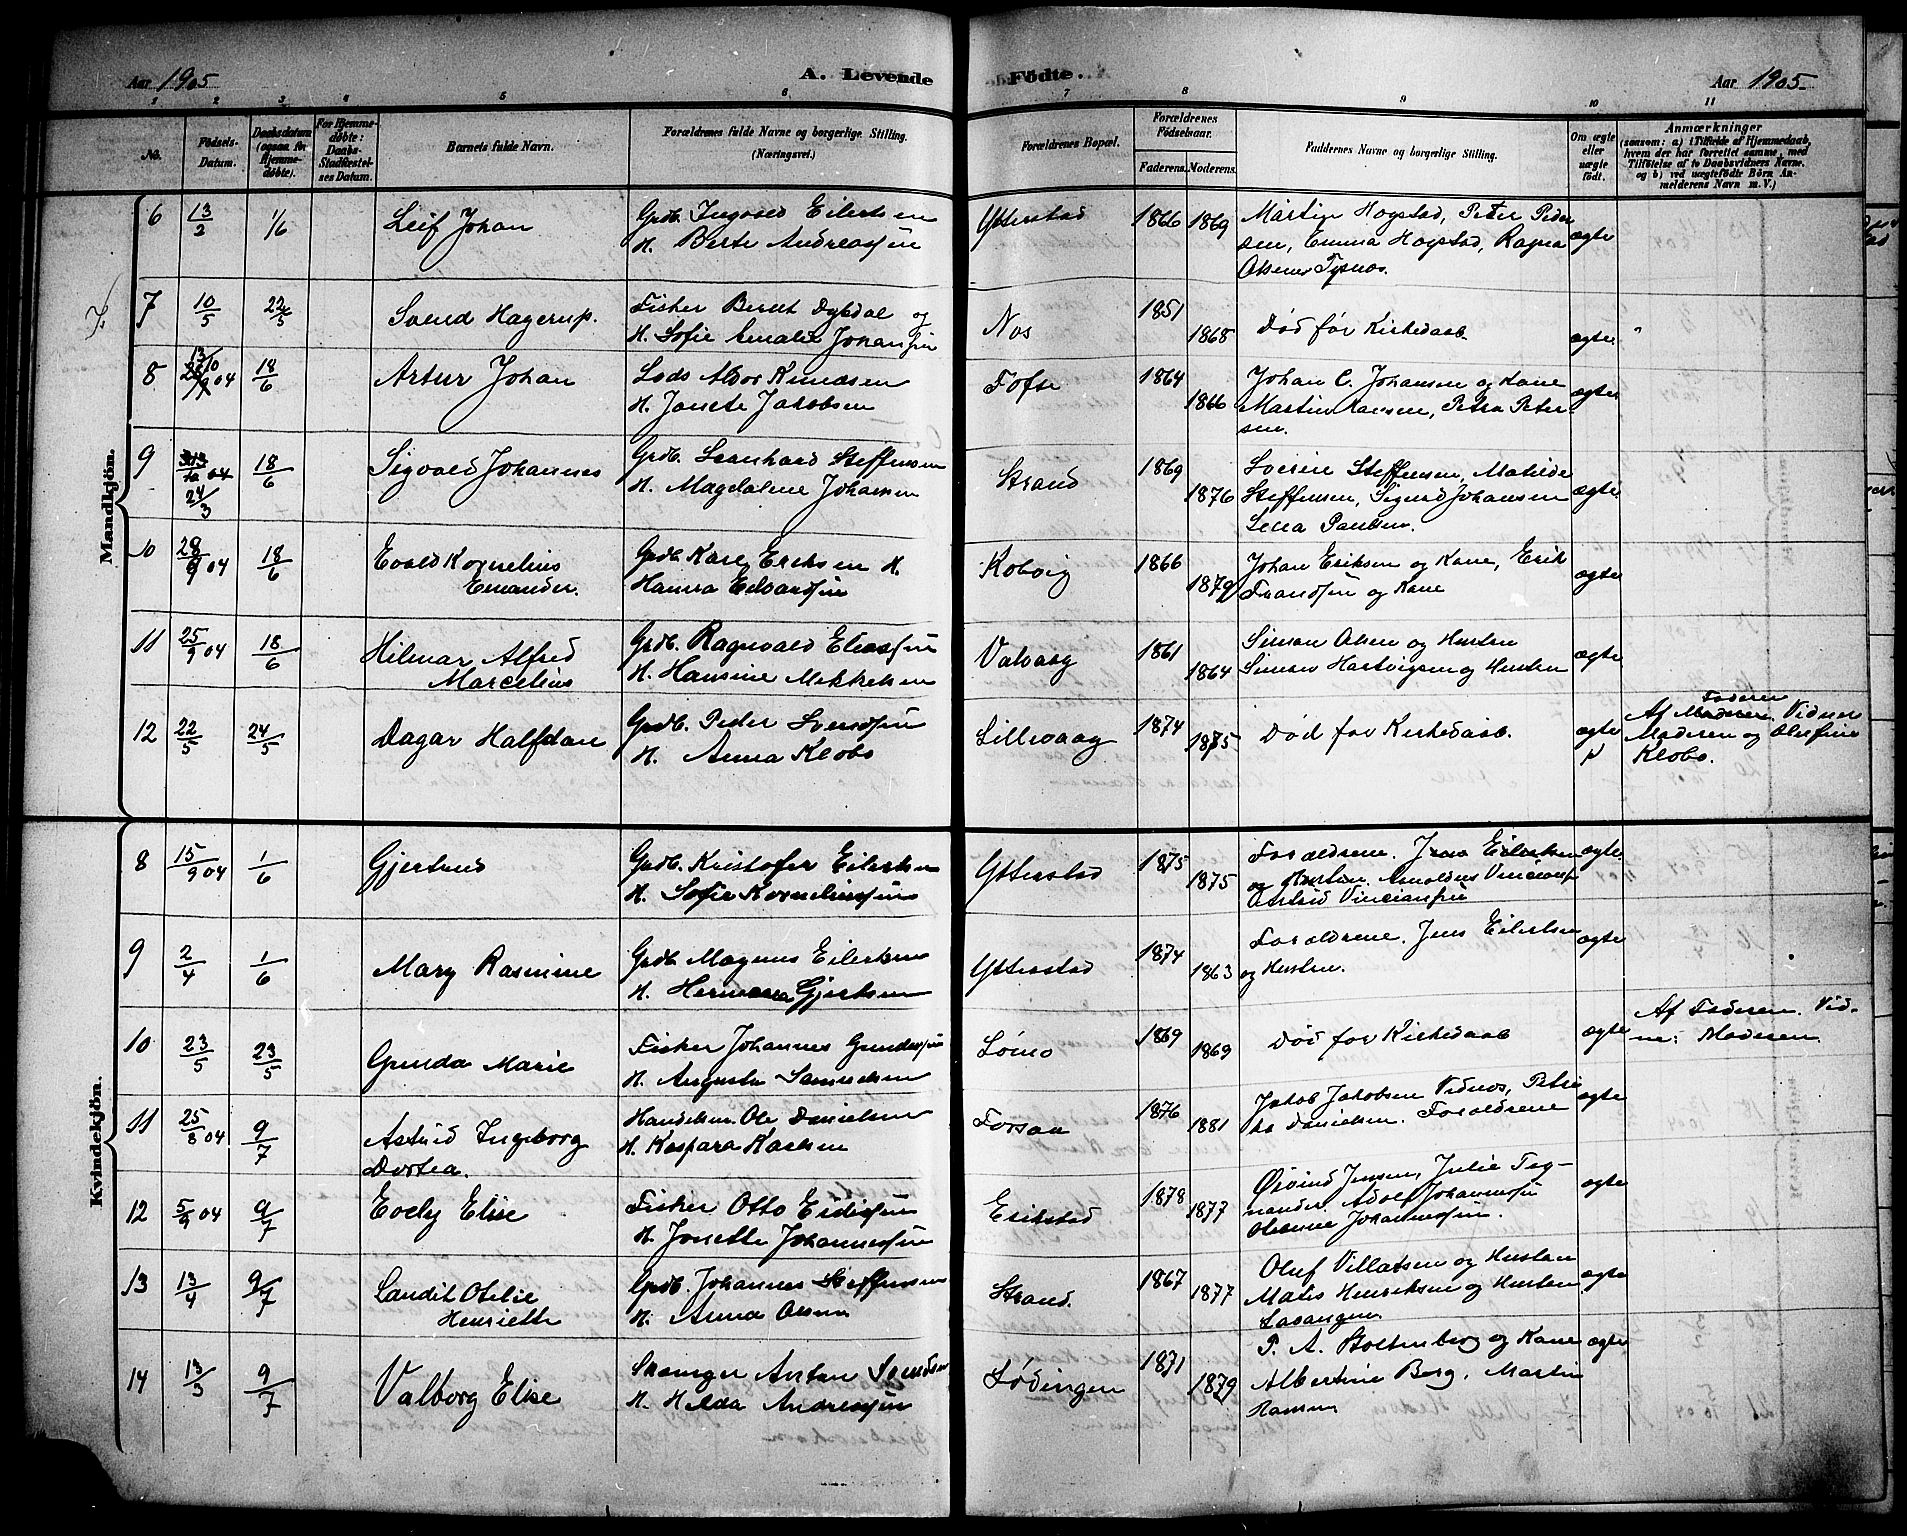 Aar 1905
A. Levende
Födte.
Aar 1905
1 2 3 4 5 6 7 8 9 10 11
No.
Födsels-Datum.
Daabsdatum (ogsaa for Hjemmedøbte).
For Hjemmedøbte: Daabs-Stadfæstelses Datum.
Barnets fulde Navn.
Forældrenes fulde Navne og borgerlige Stilling. (Næringsvei.)
Forældrenes Bopæl.
Forældrenes Födselsaar.
Faderens. Moderens.
Faddernes Navne og borgerlige Stilling.
Om ægte eller uægte födt.
Anmærkninger
(saasom: a) i Tilfælde af Hjemmedaab, hvem der har forrettet samme, med Tilföielse af to Daabsvidners Navne. og b) ved uægtefödte Börn Anmelderens Navn m. V.)
Mandkjön.
6 13/2 1/6 Leif Johan
Grdb. Ingvald Eilertsen
H. Berte Andreassen
Ytterstad 1866 1869
Martin Hogstad, Peter Peder
sen, Emma Hogstad, Ragna
Olsen Tysnes.
ægte
7 10/5 22/5 Svend Hagerup.
Fisker Berut Dybdal og
H. Sofie Amalie Johansen
Nos 1851 1868
Död för Kirkedaab
ægte
8 13/10 04 18/6 Artur Johan
Lods Aldor Knudsen
H. Janete Jakobsen
Tofte 1864 1866
Johan C. Johansen og Kone
Martin Hansen, Petra Peter
sen.
ægte
9 24/3 18/6 Sigvald Johannes
Grdb. Leonhard Steffensen
H. Magdalene Johansen
Strand 1869 1876
Sverin Steffensen, Matilde
Steffensen, Sigurd Johansen
Lena Paulsen.
ægte
10 28/9 04 18/6 Evald Kornelius
Emander.
Grdb. Karl Eriksen H.
Hanna Edvardsen
Kobvig 1866 1879
Johan Eriksen og Kone, Erik
Frandsen og Kone
ægte
11 25/9 04 18/6 Hilmar Alfred
Marcelius
Grdb. Ragnvald Eliassen
H. Hansine Mikkelsen
Valvaag 1861 1864
Simon Olsen og Hustru
Simon Hartvigsen og Hustru
ægte
12 22/5 24/5 Dagar Halfdan
Grdb. Peder Svendsen
H. Anna Klobo
Lillevaag 1874 1875
Död for Kirkedaab.
ægte
Faderen
Af Moderen. Vidner
Moderen og Olufine
Klobo.
Kvindekjön.
8 15/9 04 1/6 Gjertrud
Grdb. Kristofer Eilertsen
H. Sofie Korneliussen
Ytterstad 1875 1875
Forældrene. Jens Eilertsen
og Hustru. Arnoldus Vinciansen
Astrid Vinciansen
ægte
9 2/4 1/6 Mary Rasmine
Grdb. Magnus Eilertsen
H. Hermana Gjertsen
Ytterstad 1874 1863
Forældrene. Jens Eilertsen
og Hustru.
ægte
10 23/5 23/5 Gunda Marie
Fisker Johannes Gundersen
H. Augusta Samuelsen
Lömo 1869 1869
Död for Kirkedaab
ægte
Af Faderen. Vid-
ne: Moderen.
11 25/8 04 9/7 Astrid Ingeborg
Dortea.
Handelsm. Ole Danielsen
H. Kaspara Karlsen
Forsaa 1876 1881
Jakob Jakobsen Vidnes, Petri
ka Danielsen. Forældrene
ægte
12 5/9 04 9/7 Evely Elise
Fisker Otto Edissen
H. Jonette Johannessen
Erikstad 1878 1877
Øivind Jensen, Julie Teg-
nander, Adolf Johannessen
Oleanne Johannessen.
ægte
13 13/4 9/7 Sandit Otelie
Henriette
Grdb. Johannes Steffensen
H. Anna Olsen
Strand. 1867 1877
Oluf Villatsen og Hustru
Matis Henriksen og Hustru
Lavangen.
ægte
14 13/3 9/7 Valborg Elise
Skomager Anton Svendsen
H. Hilda Andreassen
Lødingen 1871 1879
P. A. Boltenberg og Kone
Albertine Berg, Martin
Hansen
ægte